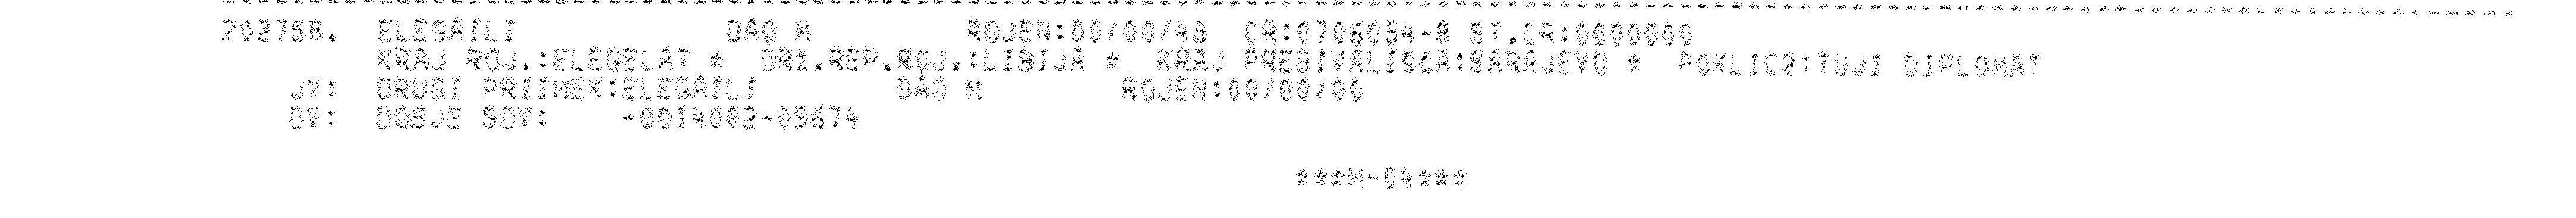 202758. ELEGAILI DAO M ROJEN:00/00/45 CR:0706054-8 ST.CR:0000000
KRAJ ROJ.:ELEGELAT * DRZ.REP.ROJ.:LIBIJA * KRAJ PREBIVALISCA:SARAJEVO * POKLIC2:TUJI DIPLOMAT
JV: DRUGI PRIIMEK:ELEGAILI DAO M ROJEN:00/00/00
DV: DOSJE SDV: -0014002-09674
***M-04***